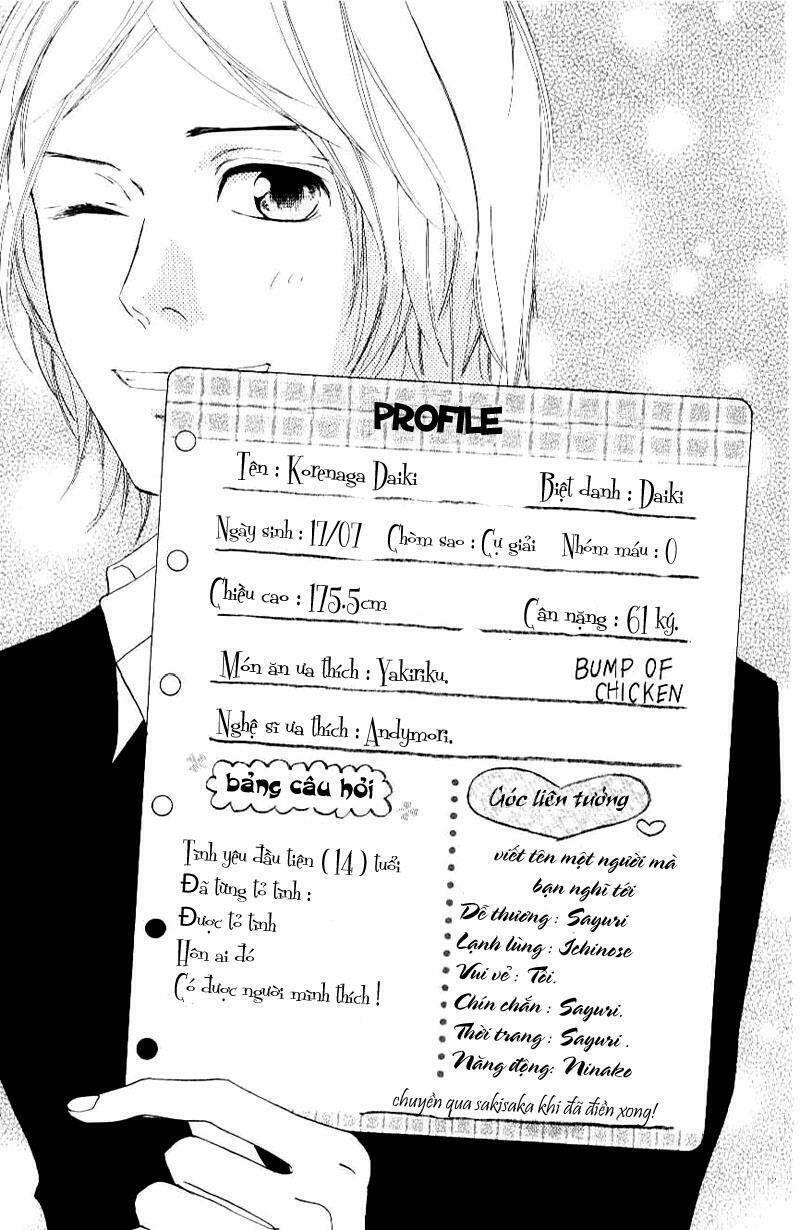 PROFILE
Tên : Korenaga Daiki Biệt danh : Daiki
Ngày sinh : 17/07 Chòm sao : Cự giải Nhóm máu : O
Chiều cao : 175.5cm Cân nặng : 61 ký.
Món ăn ưa thích : Yakiriku. BUMP OF
CHICKEN
Nghệ sĩ ưa thích : Andymori.
bảng câu hỏi
Tình yêu đầu tiện ( 14 ) tuổi
Đã từng tỏ tình :
Được tỏ tình
Hôn ai đó
Có được người mình thích !
Góc liên tưởng
viết tên một người mà
bạn nghĩ tới
Dễ thương : Sayuri
Lạnh lùng : Ichinose
Vui vẻ : Tôi.
Chín chắn : Sayuri.
Thời trang : Sayuri .
Năng động: Ninako
chuyền qua sakisaka khi đã điền xong!